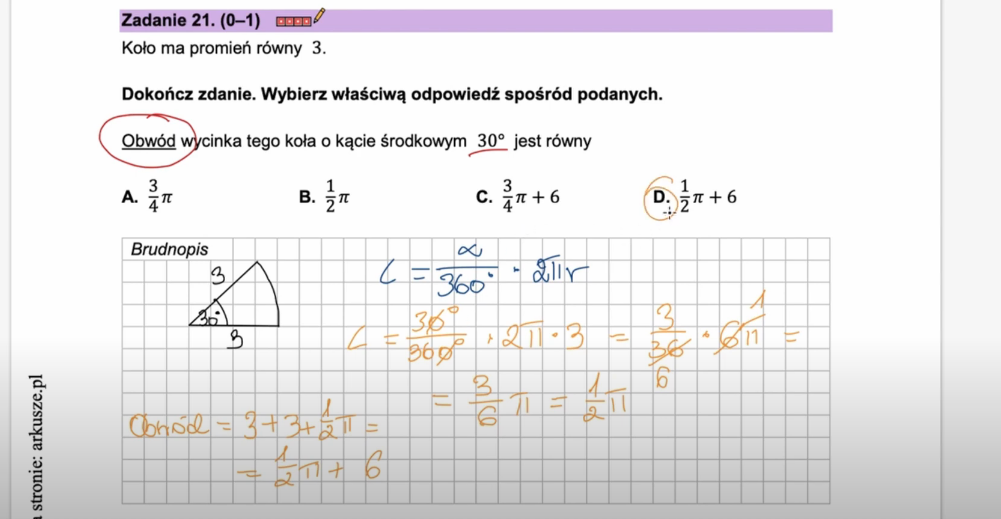 Zadanie 21. (0–1)
Koło ma promień równy 3.
Dokończ zdanie. Wybierz właściwą odpowiedź spośród podanych.
Obwód wycinka tego koła o kącie środkowym 30° jest równy
A. 3/4 π B. 1/2 π C. 3/4 π + 6 D. 1/2 π + 6
Brudnopis
3
30°
3
L = α/360° · 2πr
L = 30°/360° · 2π · 3 = 3/36 · 6π =
6
1
= 3/6 π = 1/2 π
Obwód = 3 + 3 + 1/2 π =
= 1/2 π + 6
stronie: arkusze.pl